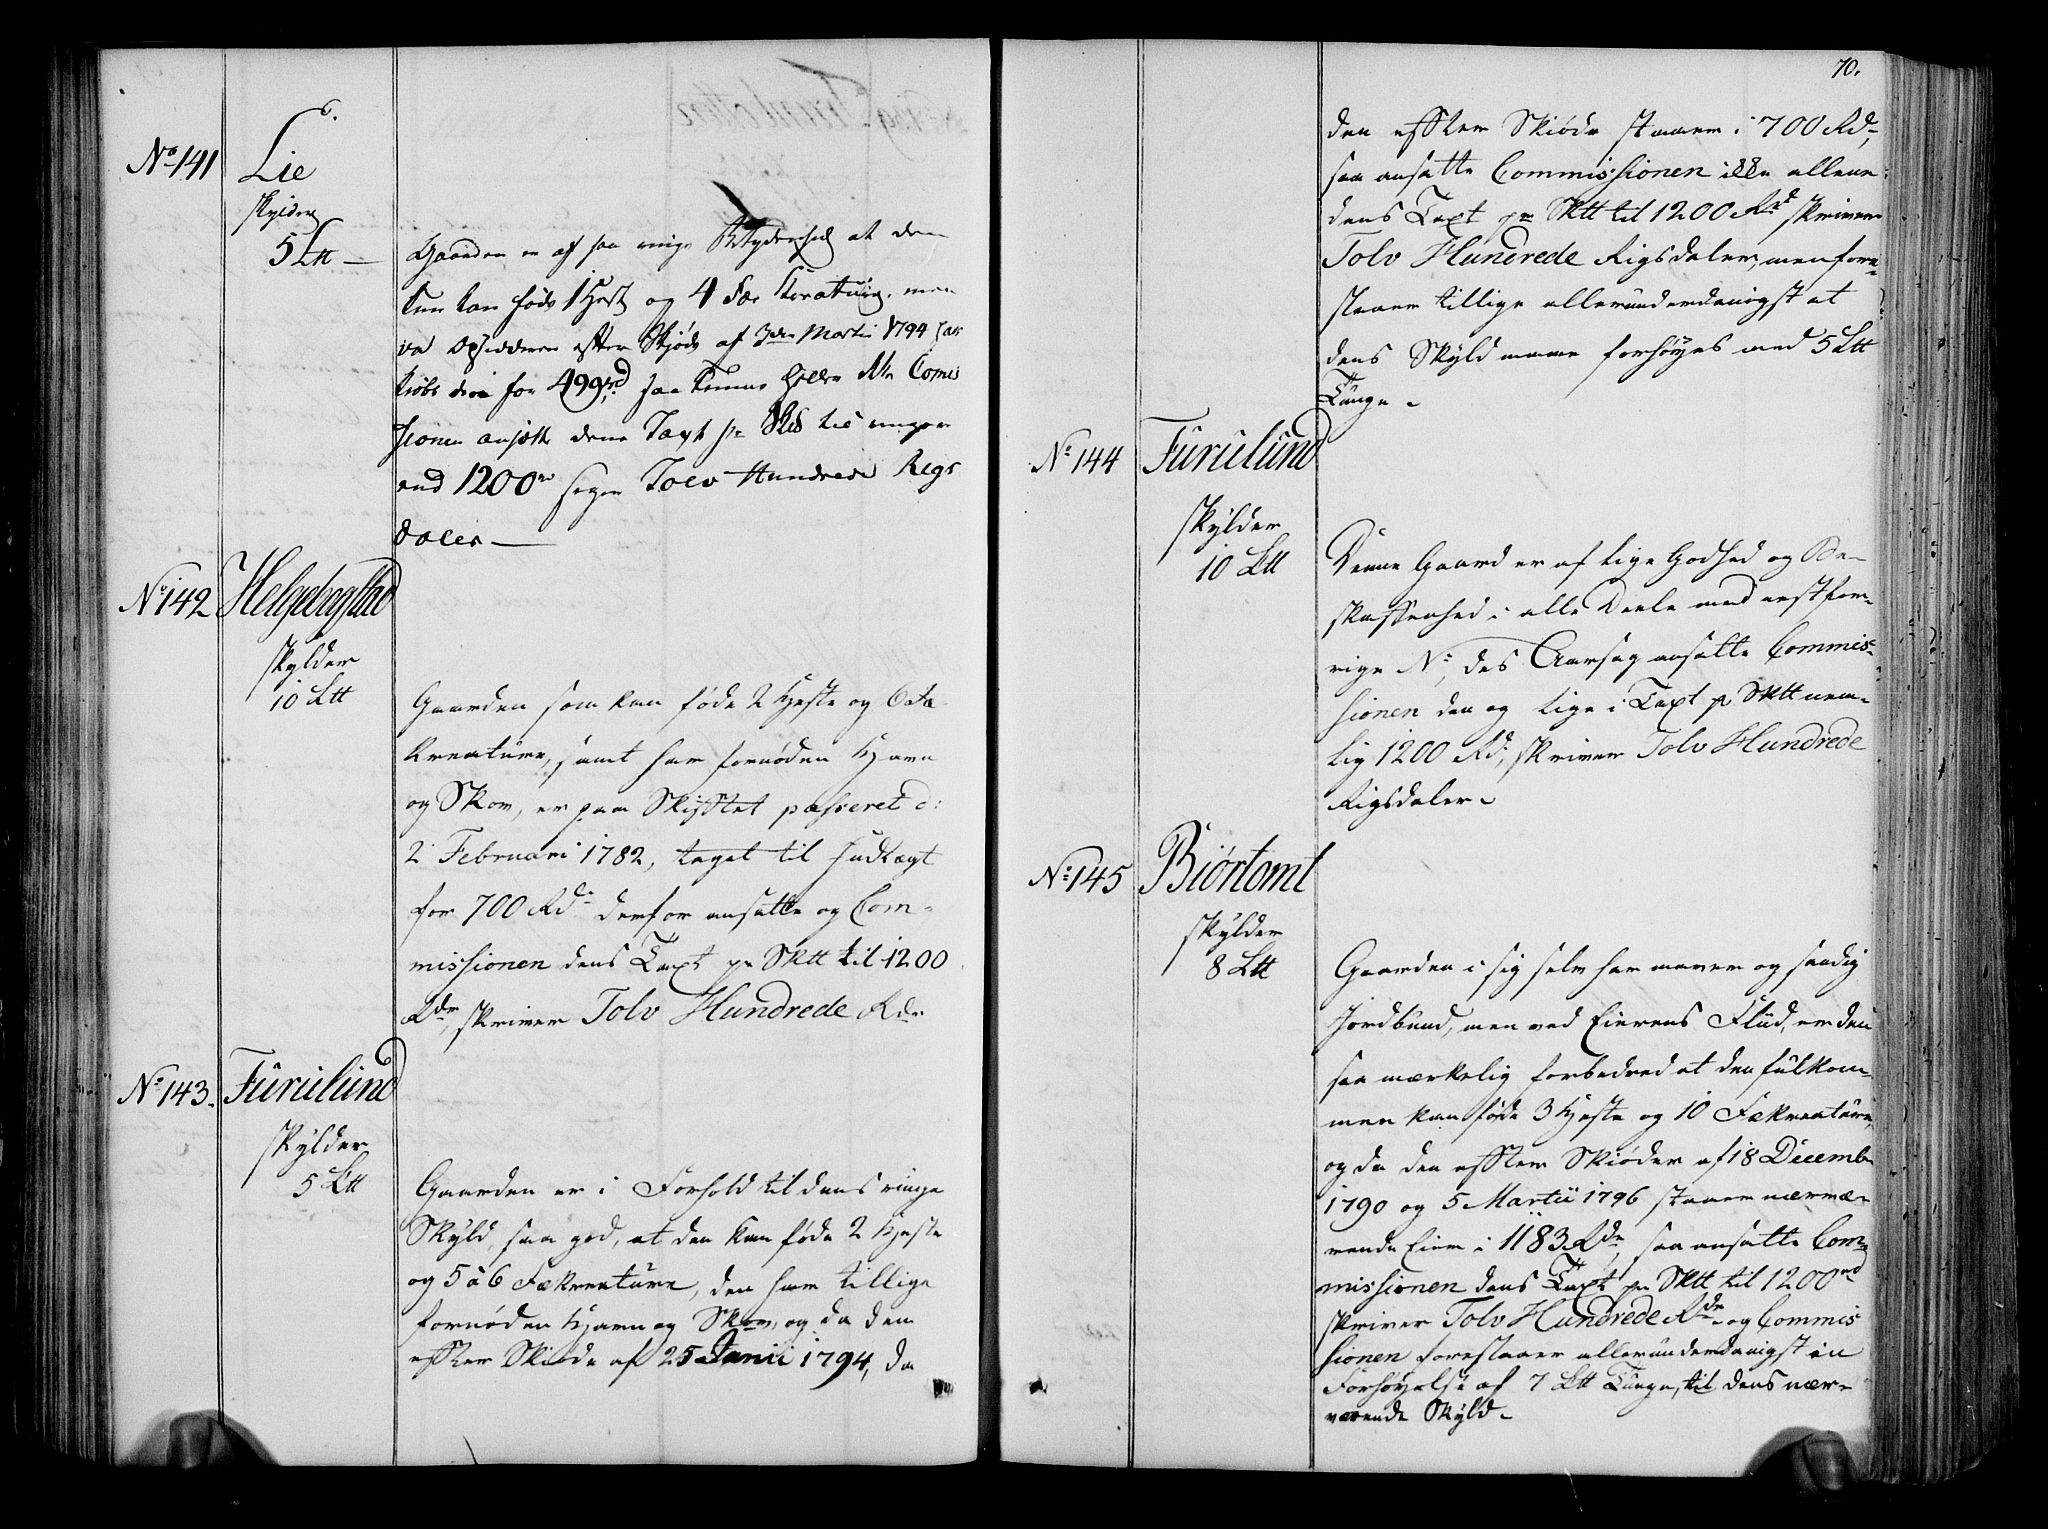 No 141
Lie
skylder
5 Ltt —
Gaarden er af saa ringe Betydenhed at den
kun kan føde 1 Hest og 4 Fæe Koratuig. men
da Opsidderen efter Skjøde af 3die Martii 1794 har
kiøbt den for 499 rd saa kunne heller ikke Comis
sionen ansætte dens Taxt pr Sktt til ringere
end 1200 rd siger Tolv Hundrede Rigs
daler —
No 142
Helgebogstad
skylder
10 Ltt
Gaarden som kan føde 2 Heste og 6 Fæ
kreature, samt har fornøden Havn
og Skov, er paa Skifftet passeret d:
2 Februari 1782, taget til Indtægt
for 700 Rd. derfor ansatte og Com-
missionen dens Taxt pr Sktt til 1200
Rdr, skriver Tolv Hundrede Rdr
No 143.
Furulund
skylder
5 Ltt
Gaarden er i Forhold til dens ringe
Skyld, saa god, at den kan føde 2 Heste
og 5 à 6 Fækreature, den har tillige
fornøden Havn og Skov, og da den
effter Skiøde af 25 Junii 1794, da
70.
den effter Skiøde staaer i 700 Rd,
saa ansatte Commissionen ikke allene
dens Taxt pr Sktt til 1200 Rd skriver
Tolv Hundrede Rigsdaler, men fore-
staaer tillige allerunderdanigst at
dens Skyld maae forhøyes med 5 Ltt
Tunge.
No 144
Furulund
skylder
10 Ltt
Denne Gaard er af lige Godhed og Be-
skaffenhed i alle Deele med nestfor-
rige No, des Aarsag ansatte Commis-
sionen den og lige i Taxt pr Sktt nem-
lig 1200 Rd, skriver Tolv Hundrede
Rigsdaler.
No 145
Biørtomt
skylder
8 Ltt
Gaarden i sig selv har maver og sandig
Jordbund, men ved Eierens Fliid, er den
saa mærkelig forbedred at den fulkom-
men kan føde 3 Heste og 10 Fækreature,
og da den effter Skiøder af 18 Decembr
1790 og 5 Martii 1796 staaer nærvæ-
rende Eier i 1183 Rdr, saa ansatte Com-
missionen dens Taxt pr Sktt til 1200 rd
skriver Tolv Hundrede Rdr og Commis
sionen forestaaer allerunderdanigst en
Forhøyelse af 7 Ltt Tunge, til dens nær-
værende Skyld.